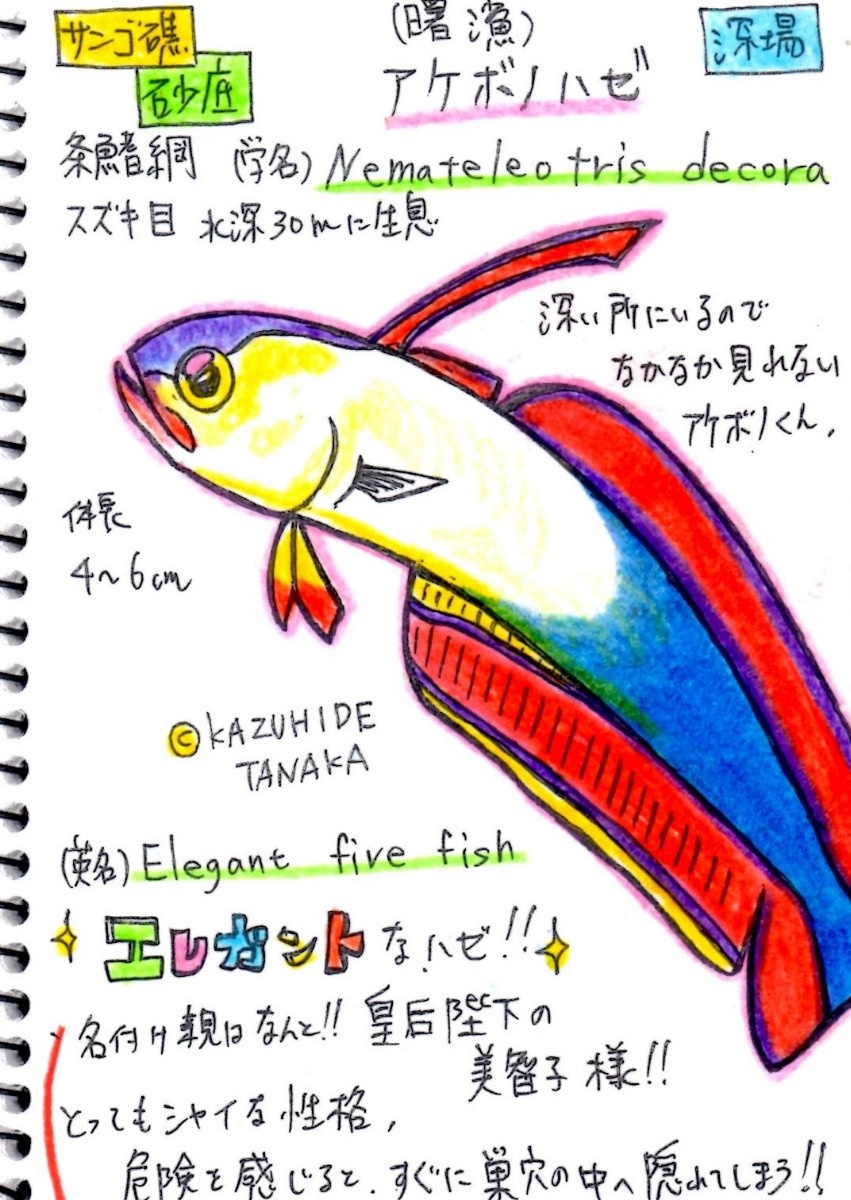 サンゴ礁
砂底
(曙漁)
アケボノハゼ
深場
条鰭網 (学名) Nemateleotris decora
スズキ目 水深30mに生息
深い所にいるので
なかなか見れない
アケボノくん。
体長
4〜6cm
©KAZUHIDE
TANAKA
(英名) Elegant five fish
エレガントなハゼ!!
名付け親はなんと!! 皇后陛下の
美智子様!!
とってもシャイな性格。
危険を感じると、すぐに巣穴の中へ隠れてしまう!!